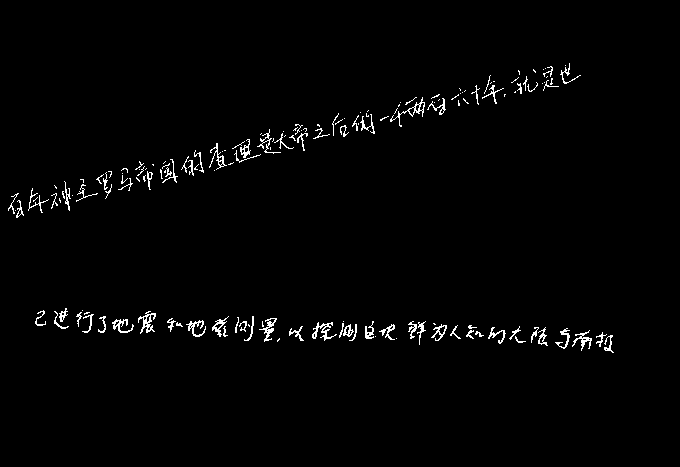 百年神圣罗马帝国的查理曼大帝之后的一千两百六十年，就是世
已进行了地震和地磁测量，以探测这块鲜为人知的大陆与南极